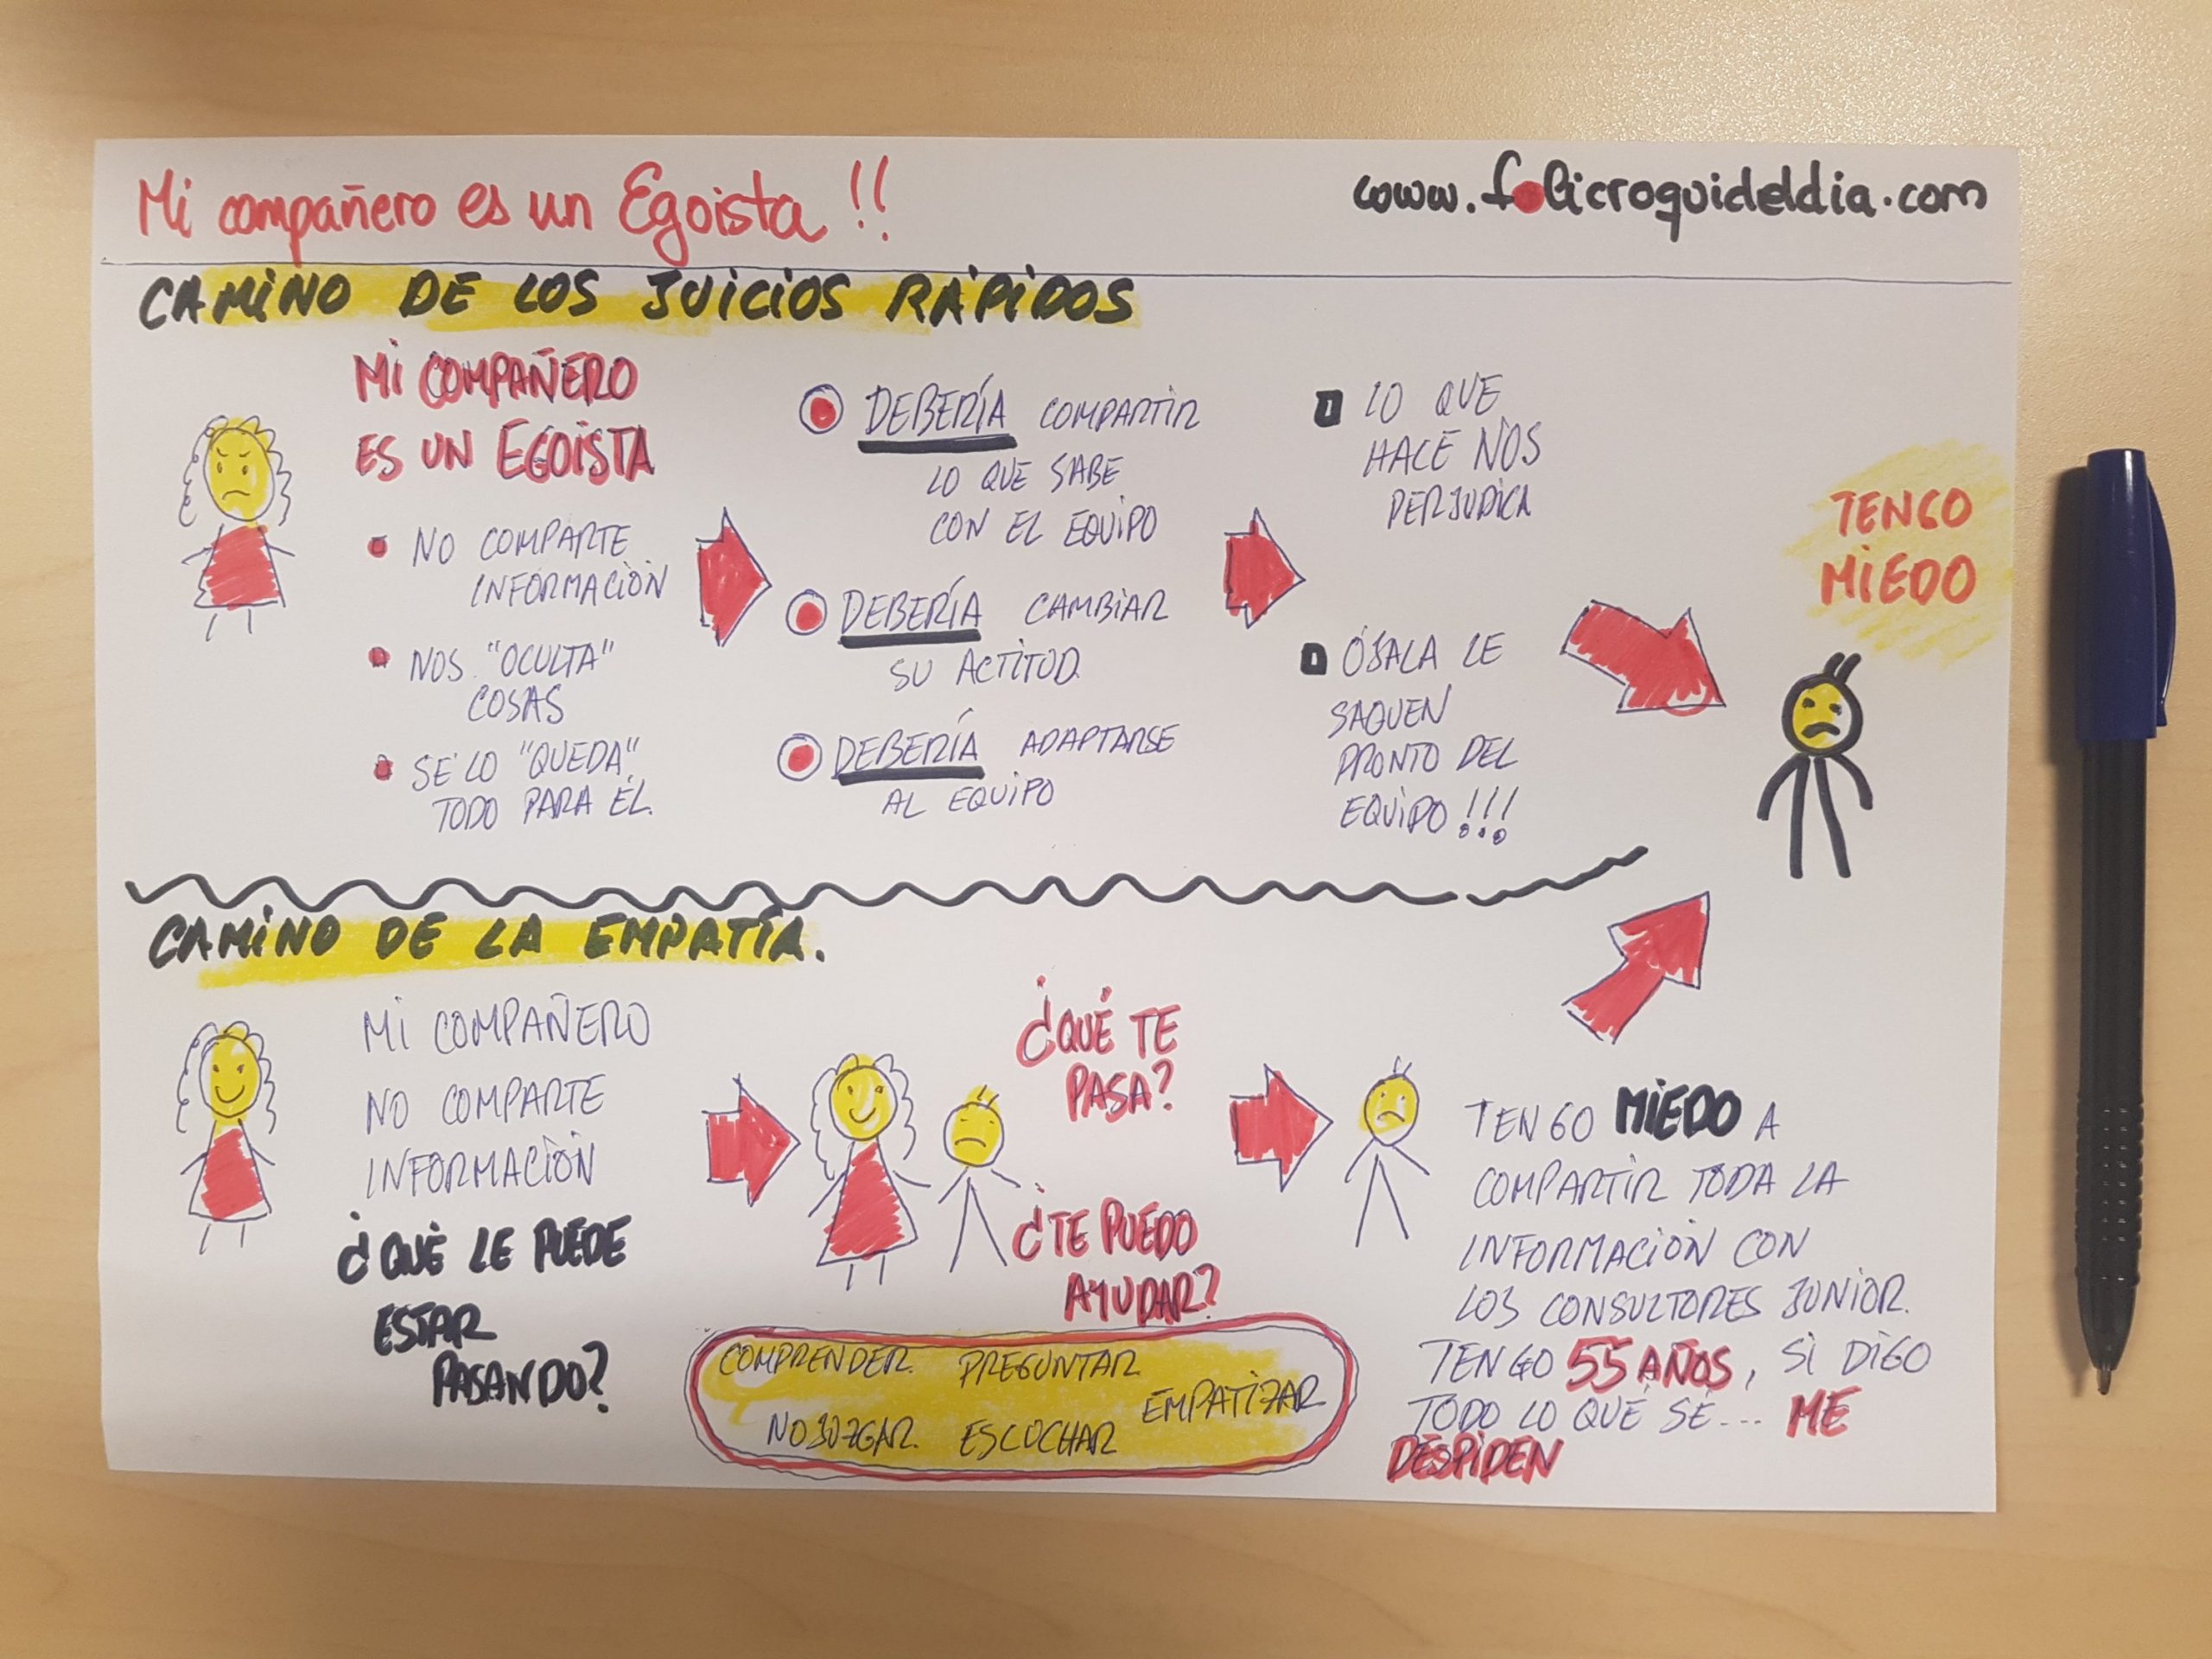 Mi compañero es un Egoista !!
www.folicroquideldia.com
CAMINO DE LOS JUICIOS RÁPIDOS
MI COMPAÑERO
ES UN EGOISTA
NO COMPARTE
INFORMACIÓN
NOS "OCULTA"
COSAS
SE LO "QUEDA"
TODO PARA ÉL.
DEBERÍA COMPARTIR
LO QUE SABE
CON EL EQUIPO
DEBERÍA CAMBIAR
SU ACTITUD
DEBERÍA ADAPTARSE
AL EQUIPO
LO QUE
HACE NOS
PERJUDICA
ÓJALA LE
SAQUEN
PRONTO DEL
EQUIPO !!!
TENGO
MIEDO
CAMINO DE LA EMPATÍA.
MI COMPAÑERO
NO COMPARTE
INFORMACIÓN
¿QUÉ LE PUEDE
ESTAR
PASANDO?
¿QUÉ TE
PASA?
¿TE PUEDO
AYUDAR?
COMPRENDER. PREGUNTAR
EMPATIZAR
NO JUZGAR. ESCUCHAR
TENGO MIEDO A
COMPARTIR TODA LA
INFORMACIÓN CON
LOS CONSULTORES JUNIOR.
TENGO 55 AÑOS, SI DIGO
TODO LO QUE SÉ... ME
DESPIDEN